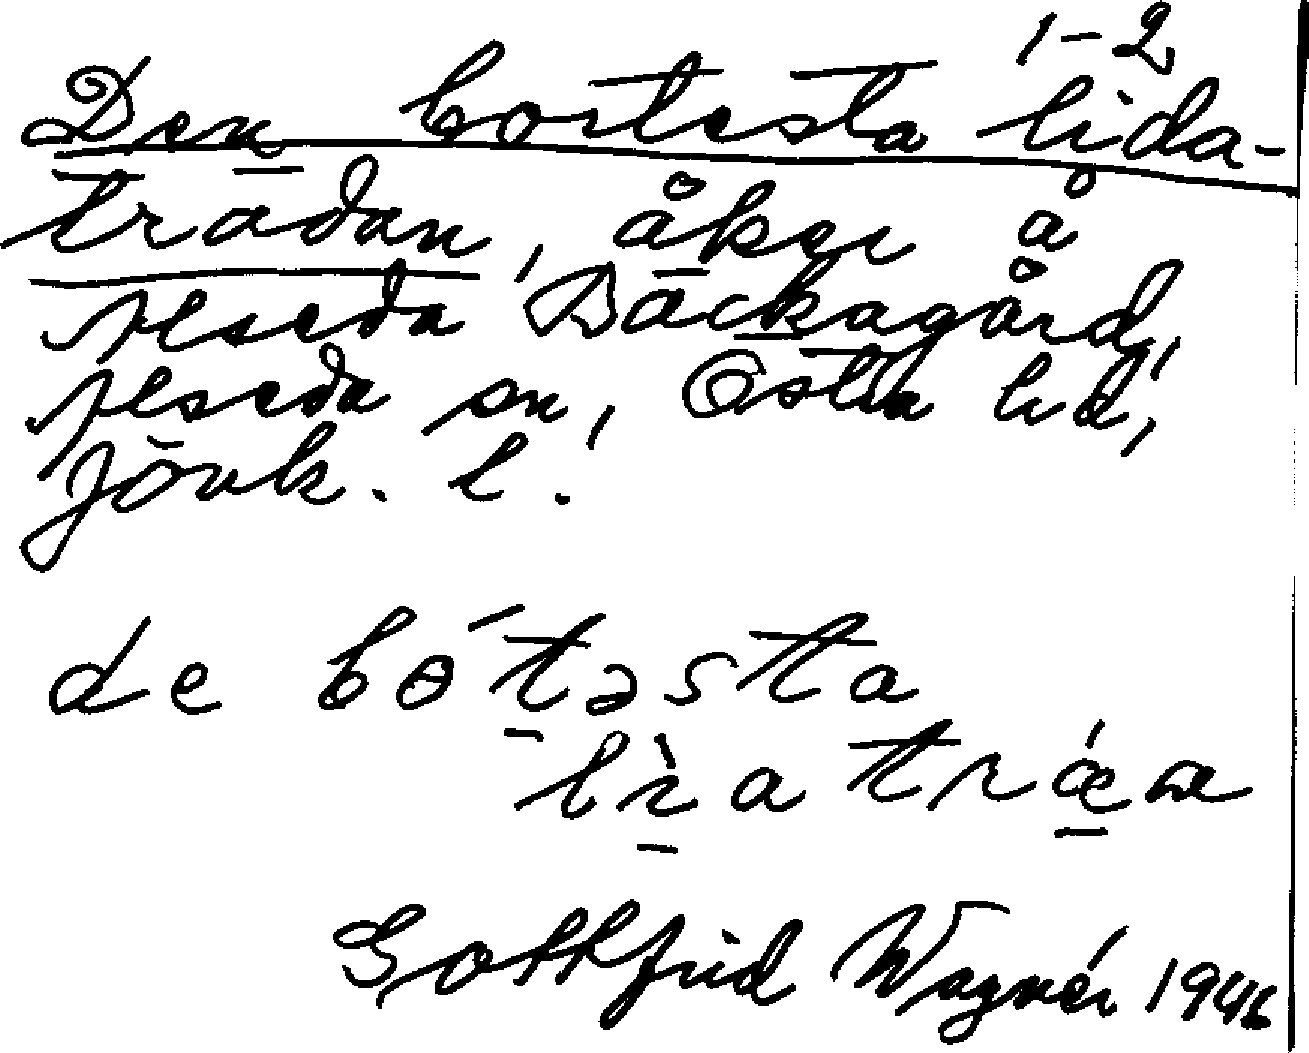 1-2
Den bortesta lida-
trädan, åker å
Alseda Backagård,
Alseda sn, Östra hd,
Jönk. l.
de bɵ́təsta
lìatrǽa
Gottfrid Wagnér 1946